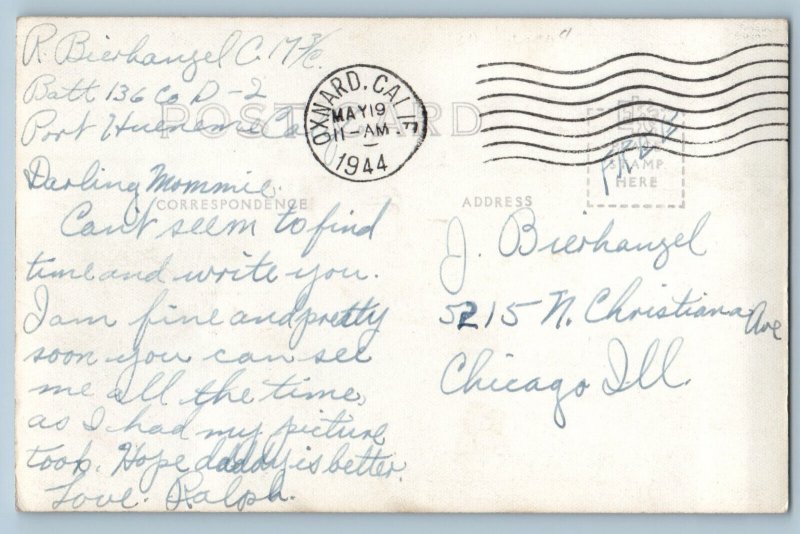 R. Bierhangel C. M 3/c.
Batt 136 Co D-2
Port Hueneme Ca
POST CARD
OXNARD, CALIF
MAY 19
11-AM
1944
STAMP
HERE
FREE
Darling Mommie.
CORRESPONDENCE
Can't seem to find
time and write you.
I am fine and pretty
soon you can see
me all the time,
as I had my picture
took. Hope daddy is better.
Love. Ralph.
ADDRESS
J. Bierhangel
5215 N. Christiana Ave
Chicago Ill.